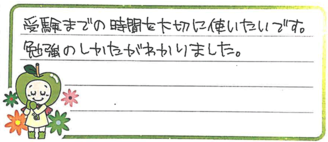 受験までの時間を大切に使いたいです。
勉強のしかたがわかりました。